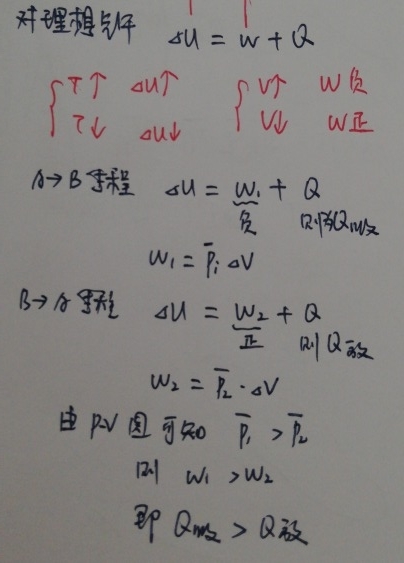 对理想气体 ΔU = W + Q
{ T↑ ΔU↑ { V↑ W负
{ T↓ ΔU↓ { V↓ W正
A→B 等程 ΔU = W₁ + Q
负 则Q吸
W₁ = P̅₁ΔV
B→A 等程 ΔU = W₂ + Q
正 则Q放
W₂ = P̅₂·ΔV
由PV图可知 P̅₁ > P̅₂
则 W₁ > W₂
即 Q吸 > Q放